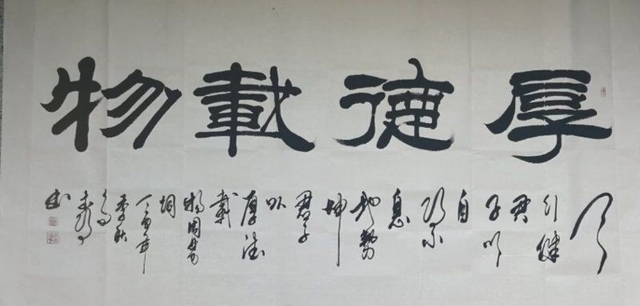 厚德載物
天
行健
君
子以
自
強不
息
地勢
坤
君子
以
厚德
載
物周易
丁酉年
季秋